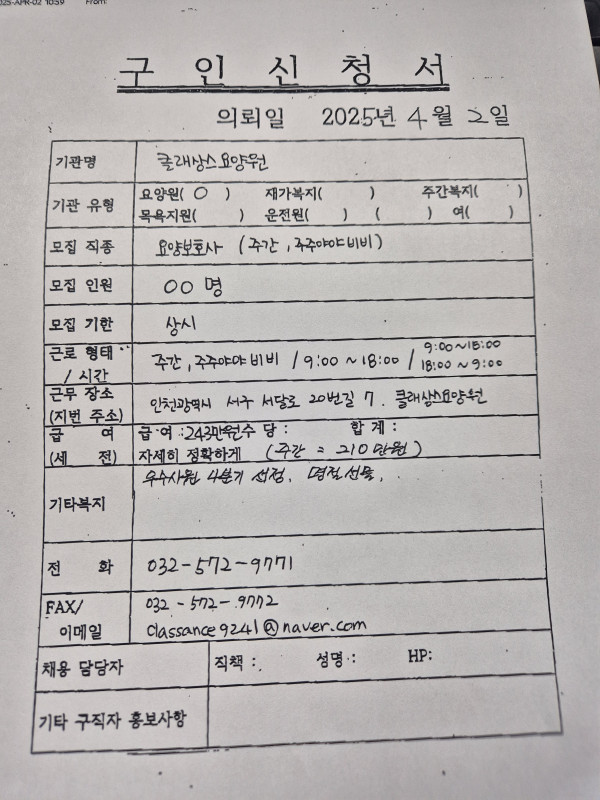 2025-APR-02 10:59 From:
구 인 신 청 서
의뢰일 2025년 4월 2일
기관명 클래상스요양원
기관 유형 요양원( ○ ) 재가복지( ) 주간복지( )
목욕지원( ) 운전원( ) ( ) 여( )
모집 직종 요양보호사 (주간, 주주야야비비)
모집 인원 00 명
모집 기한 상시
근로 형태 / 시간 주간, 주주야야비비 / 9:00 ~ 18:00 / 9:00 ~ 18:00
18:00 ~ 9:00
근무 장소 (지번 주소) 인천광역시 서구 서달로 20번길 7. 클래상스요양원
급 여 급 여 : 243만원 수 당 : 합 계 :
(세 전) 자세히 정확하게 (주간 = 210만원)
기타복지 우수사원 4분기 선정, 명절선물,
전 화 032-572-9771
FAX/ 032-572-9772
이메일 classance9241@naver.com
채용 담당자 직책 : 성명 : HP:
기타 구직자 홍보사항